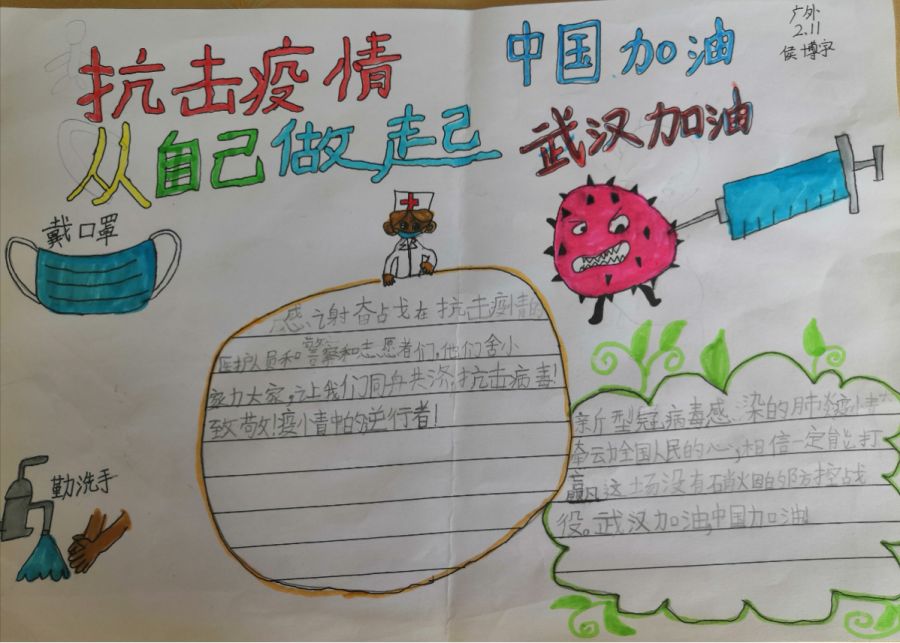 抗击疫情
从自己做走己
中国加油
武汉加油
广外
2.11
侯博宇
戴口罩
感谢奋占戈在抗击疫情的
医护人员和警察和志愿者们,他们舍小
家力大家,让我们同舟共济抗击病毒!
致敬!疫情中的逆行者!
勤洗手
新型冠病毒感染的肺炎疫情
牵云力全国人民的心,相信一定能打
赢这场没有硝火因的防控战
役。武汉加油,中国加油!